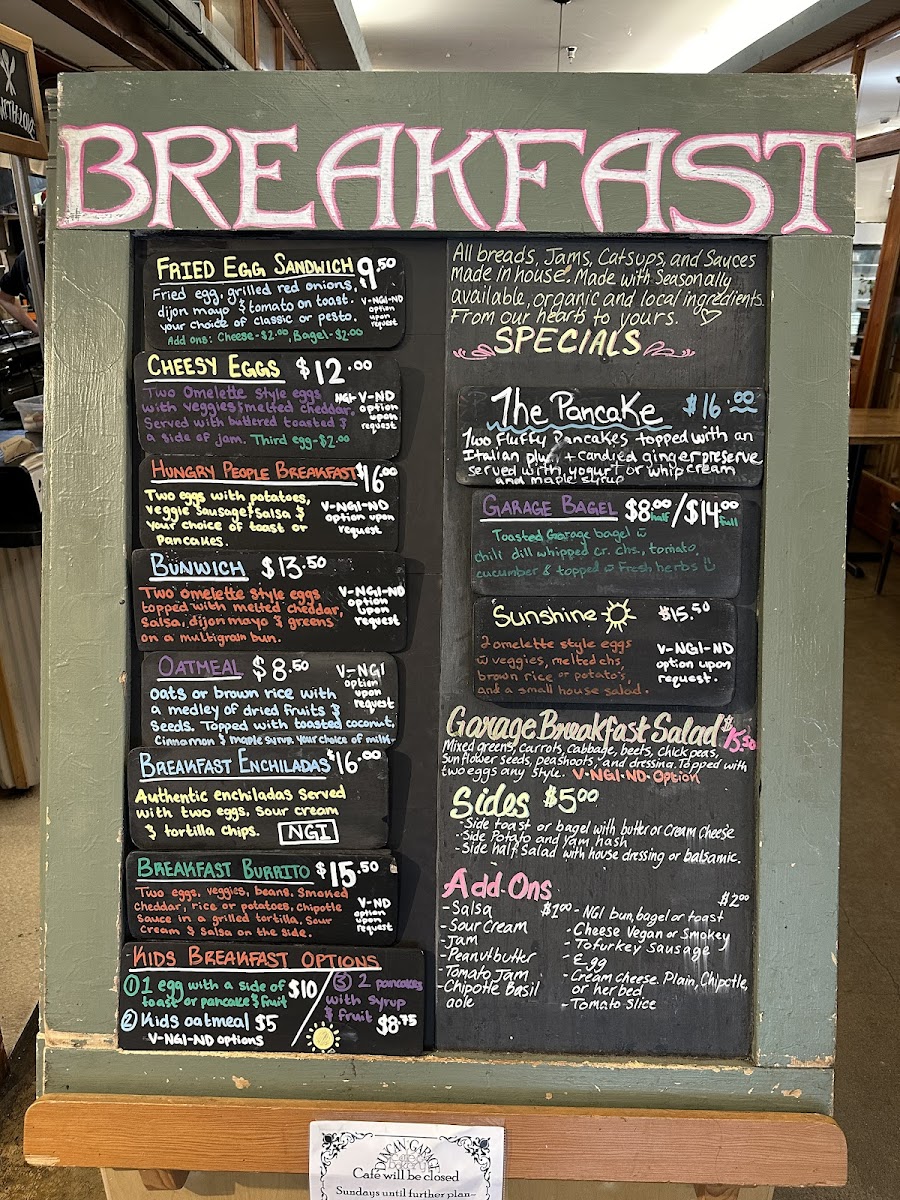 BREAKFAST
FRIED EGG SANDWICH 9.50
Fried egg, grilled red onions,
dijon mayo & tomato on toast.
your choice of classic or pesto.
Add ons: Cheese-$2.00, Bagel-$2.00
V-NGI-ND
option
upon
request
CHEESY EGGS $12.00
Two Omelette Style eggs
with veggies & melted cheddar.
Served with buttered toasted &
a side of jam. Third egg-$2.00
NGI-V-ND
option
upon
request
HUNGRY PEOPLE BREAKFAST $16.00
Two eggs with potatoes,
veggie sausage, salsa &
your choice of toast or
pancakes.
V-NGI-ND
option upon
request
BUNWICH $13.50
Two omelette style eggs
topped with melted cheddar,
salsa, dijon mayo & greens
on a multigrain bun.
V-NGI-ND
option
upon
request
OATMEAL $8.50
oats or brown rice with
a medley of dried fruits &
seeds. Topped with toasted coconut,
Cinnamon & maple syrup. your choice of milk.
V-NGI
option
upon
request
BREAKFAST ENCHILADAS $16.00
Authentic enchiladas served
with two eggs, sour cream
& tortilla chips. NGI
BREAKFAST BURRITO $15.50
Two eggs, veggies, beans, smoked
cheddar, rice or potatoes, chipotle
sauce in a grilled tortilla. Sour
cream & salsa on the side.
V-ND
option
upon
request
KIDS BREAKFAST OPTIONS
① 1 egg with a side of $10
toast or pancake & fruit
② Kids oatmeal $5
V-NGI-ND options
③ 2 pancakes
with syrup
& fruit $8.75
All breads, Jams, Catsups, and Sauces
made in house. Made with Seasonally
available, organic and local ingredients.
From our hearts to yours. ♡
SPECIALS
The Pancake $16.00
Two fluffy Pancakes topped with an
Italian + candied ginger preserve
served with yogurt or whip cream
and maple syrup
GARAGE BAGEL $8.00 half/$14.00 full
Toasted Garage bagel w
chili dill whipped cr. chs, tomato,
cucumber & topped w fresh herbs
Sunshine $15.50
2 omelette style eggs
w veggies, melted chs,
brown rice or potato's,
and a small house salad.
V-NGI-ND
option upon
request.
Garage Breakfast Salad $15.50
Mixed greens, carrots, cabbage, beets, chick peas,
sunflower seeds, peashoots, and dressing. Topped with
two eggs any style. V-NGI-ND-Option
Sides $5.00
-Side toast or bagel with butter or Cream Cheese
-Side Potato and yam hash
-Side half Salad with house dressing or balsamic.
Add-Ons
-Salsa $1.00
-Sour Cream
-Jam
-Peanut butter
-Tomato Jam
-Chipotle Basil
aole
$2.00
-NGI bun, bagel or toast
-Cheese Vegan or Smokey
-Tofurkey sausage
-Egg
-Cream cheese. Plain, Chipotle,
or herbed
-Tomato slice
DUNCAN GARAGE
Cafe & Bakery
Cafe will be closed
Sundays until further plan-